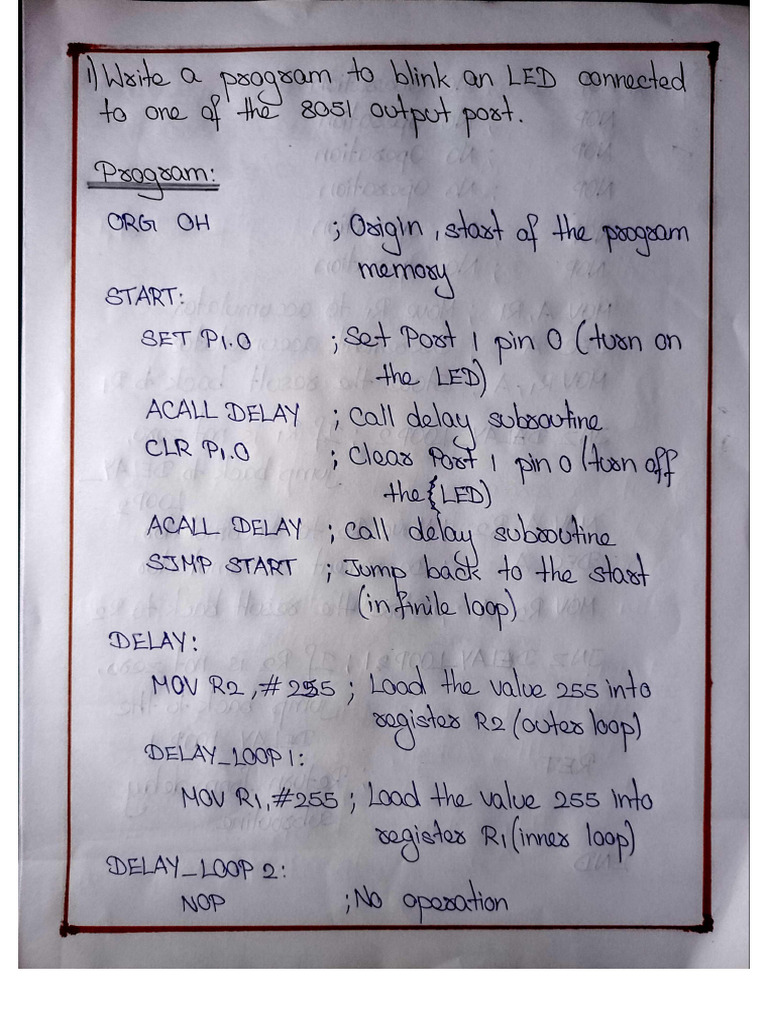 1) Write a program to blink an LED connected
to one of the 8051 output port.
Program:
ORG 0H ; Origin, start of the program
memory
START:
SET P1.0 ; Set Port 1 pin 0 (turn on
the LED)
ACALL DELAY ; Call delay subroutine
CLR P1.0 ; Clear Port 1 pin 0 (turn off
the LED)
ACALL DELAY ; Call delay subroutine
SJMP START ; Jump back to the start
(infinile loop)
DELAY:
MOV R2, #255 ; Load the value 255 into
register R2 (outer loop)
DELAY_LOOP1:
MOV R1, #255 ; Load the value 255 into
register R1 (inner loop)
DELAY_LOOP 2:
NOP ; No operation